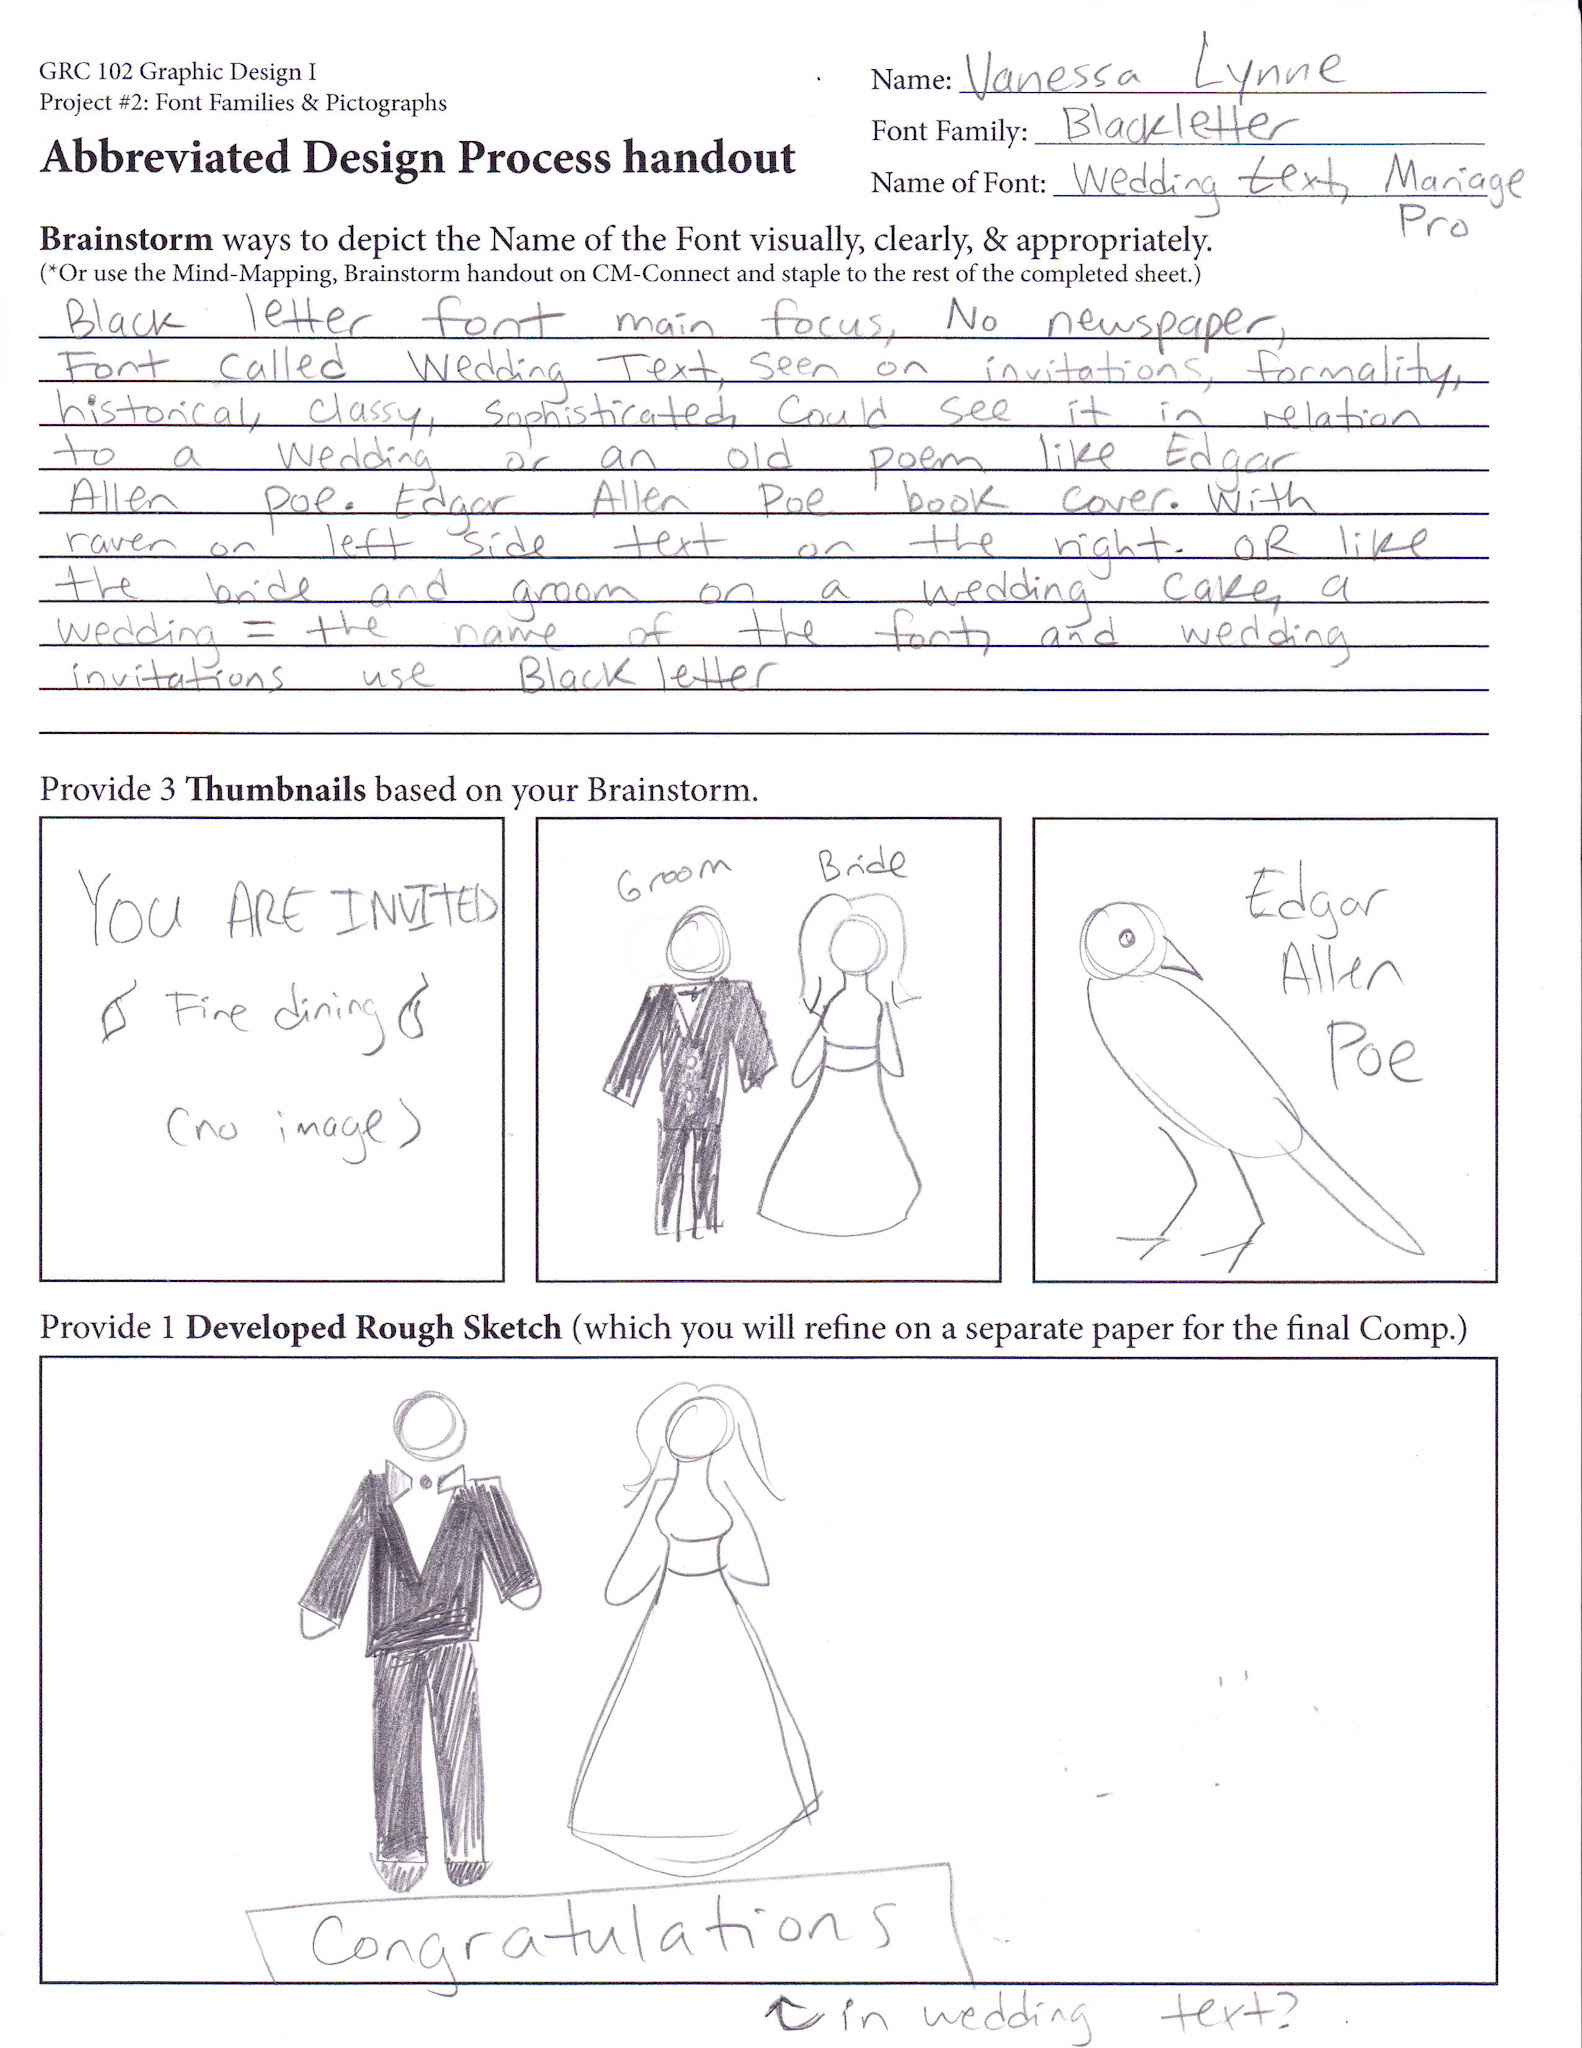 GRC 102 Graphic Design I
Project #2: Font Families & Pictographs
Abbreviated Design Process handout
Name: Vanessa Lynne
Font Family: Blackletter
Name of Font: Wedding text, Mariage
Pro
Brainstorm ways to depict the Name of the Font visually, clearly, & appropriately.
(*Or use the Mind-Mapping, Brainstorm handout on CM-Connect and staple to the rest of the completed sheet.)
Black letter font main focus, No newspaper,
Font called Wedding Text, seen on invitations, formality,
historical, classy, sophisticated, Could see it in relation
to a wedding or an old poem like Edgar
Allen poe. Edgar Allen Poe book cover. With
raven on left side text on the right. OR like
the bride and groom on a wedding cake, a
wedding = the name of the font, and wedding
invitations use Black letter
Provide 3 Thumbnails based on your Brainstorm.
YOU ARE INVITED
Fine dining
(no image)
Groom Bride
Edgar
Allen
Poe
Provide 1 Developed Rough Sketch (which you will refine on a separate paper for the final Comp.)
Congratulations
in wedding text?